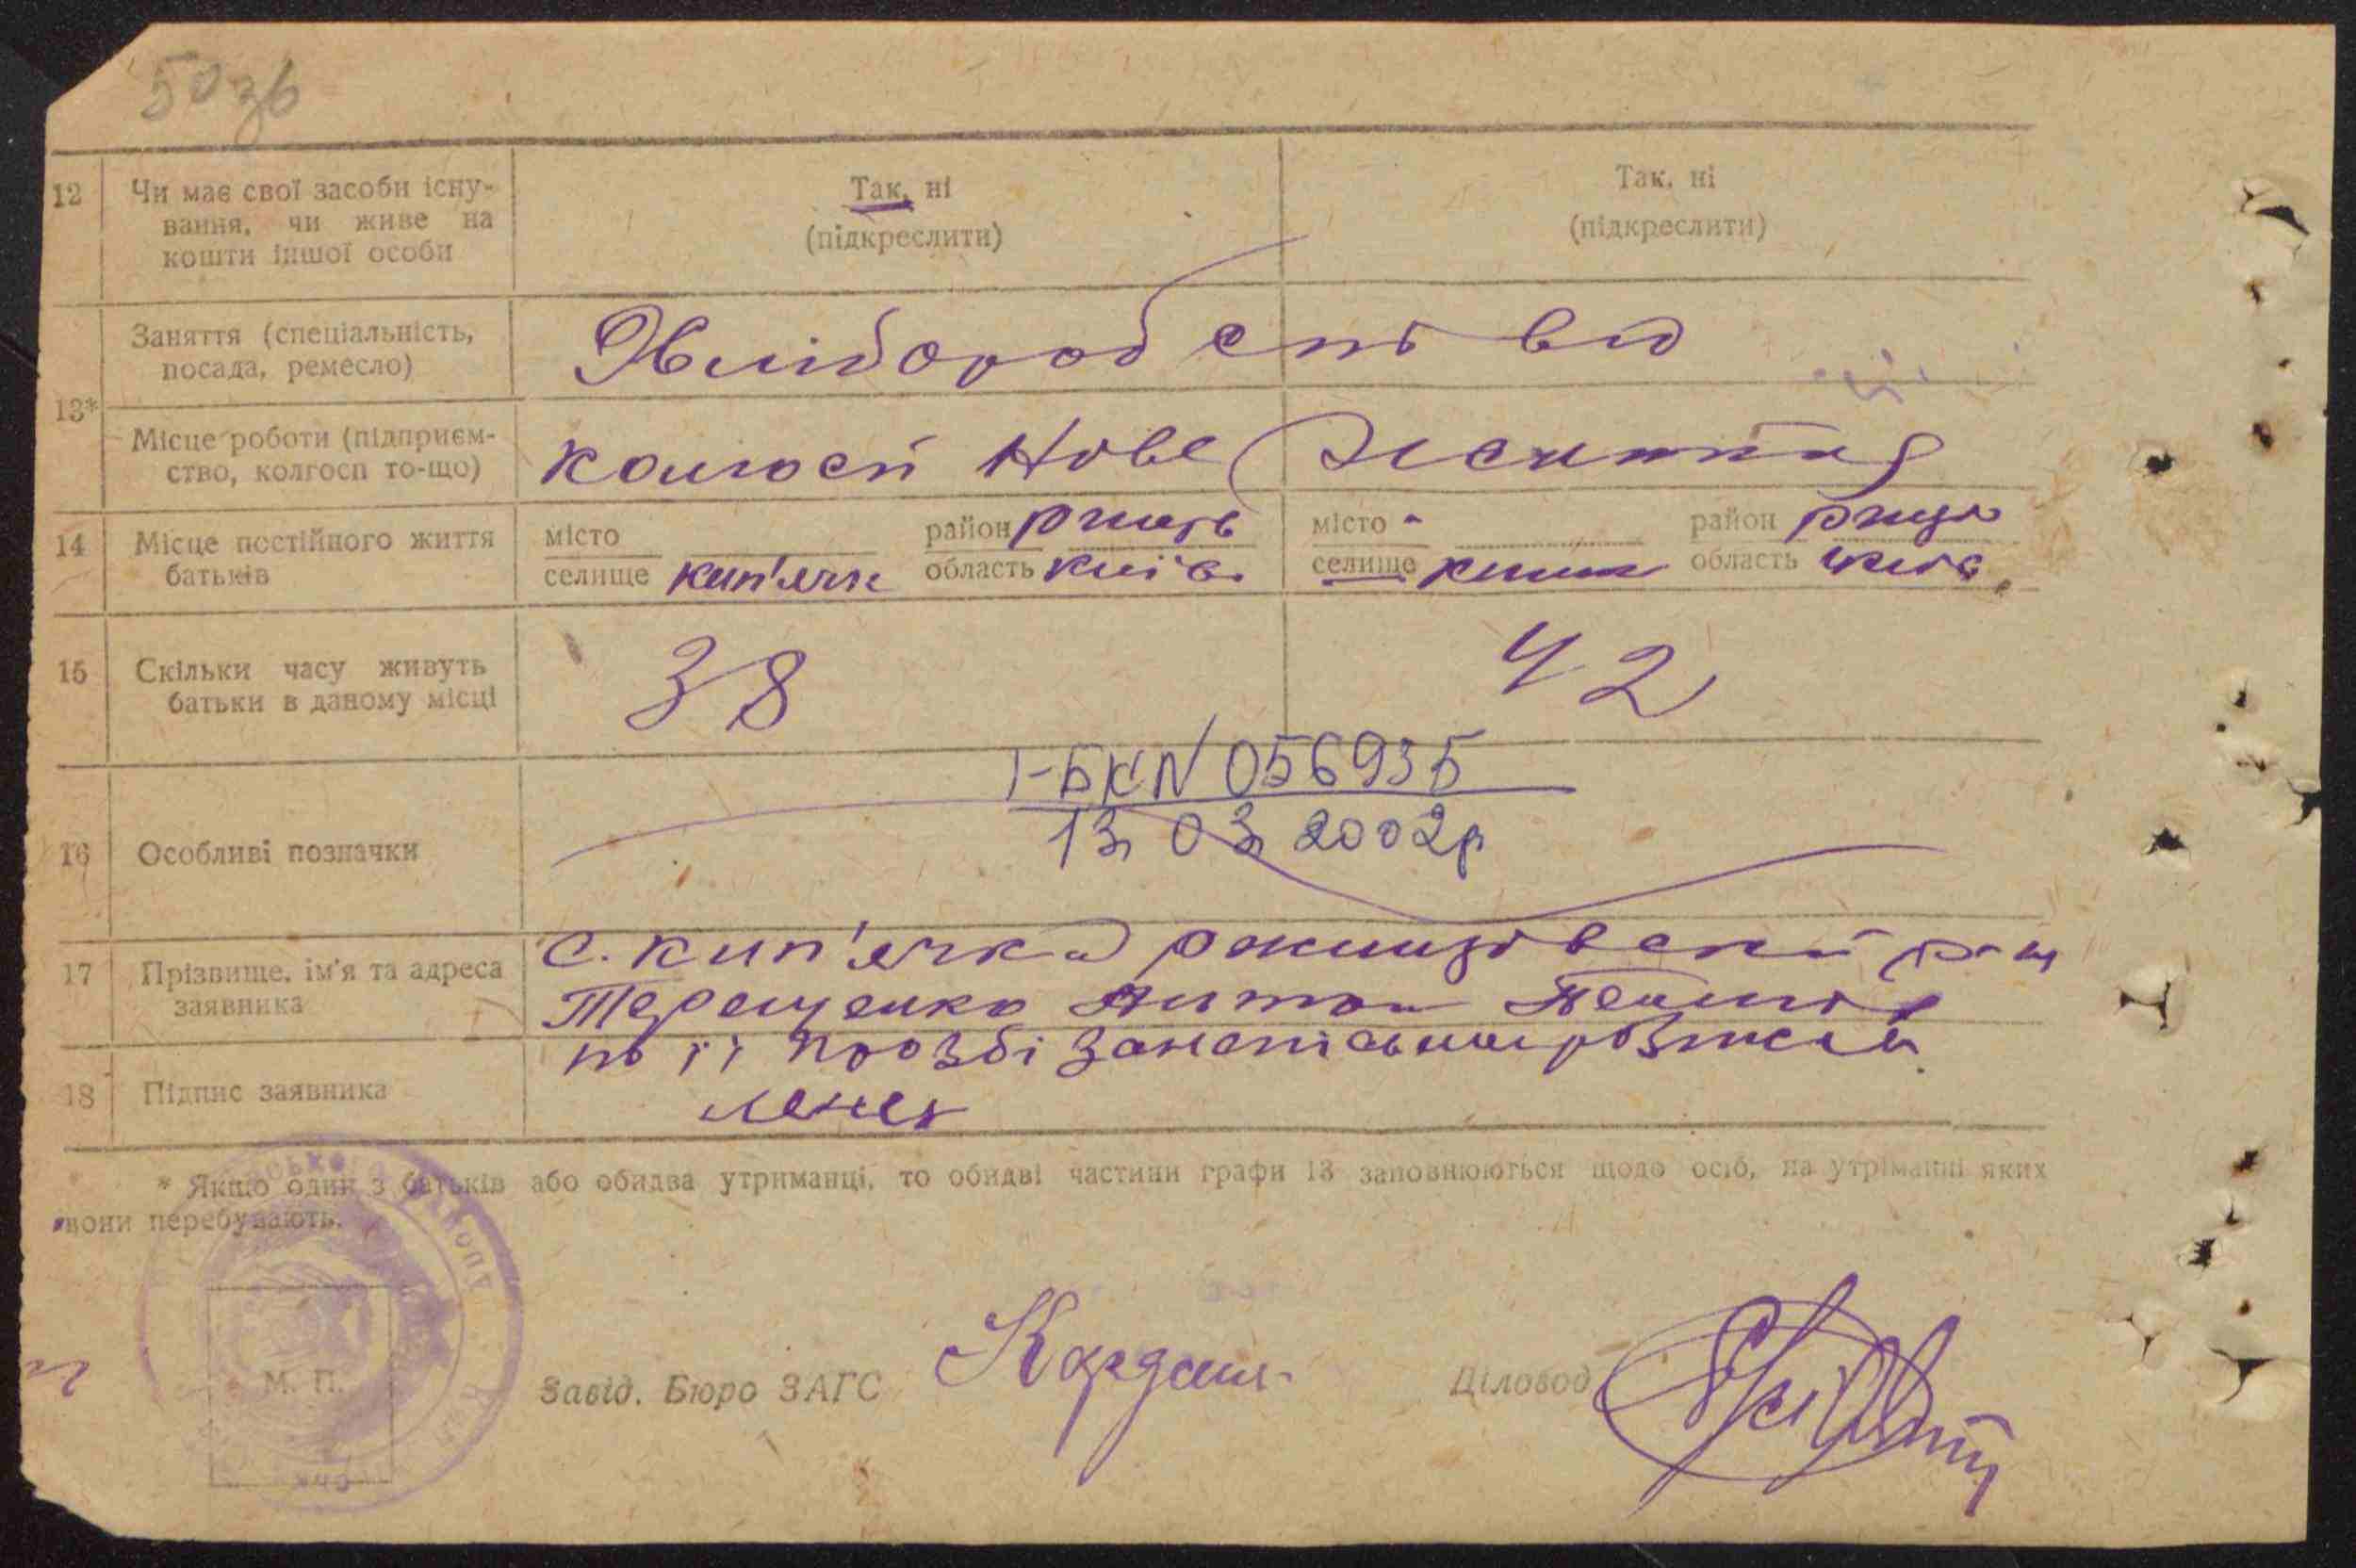 50 зв
12 Чи має свої засоби існу-
вання, чи живе на
кошти іншої особи
Так, ні
(підкреслити)
Так, ні
(підкреслити)
13*
Заняття (спеціальність,
посада, ремесло)
Хліборобство
Місце роботи (підприєм-
ство, колгосп то-що)
колгосп Нове Життя
14 Місце постійного життя
батьків
місто
район
селище кип'ячк
область київ.
місто
район
селище
область
15 Скільки часу живуть
батьки в даному місці
38
42
16 Особливі позначки
І-БК N 056935
13 03 2002р
17 Прізвище, ім'я та адреса
заявника
с. кип'ячка
Терещенко
18 Підпис заявника
по її прозбі
* Якщо один з батьків або обидва утриманці, то обидві частини графи 13 заповнюються щодо осіб, на утріманні яких
вони перебувають.
М. П.
Завід. Бюро ЗАГС
Діловод